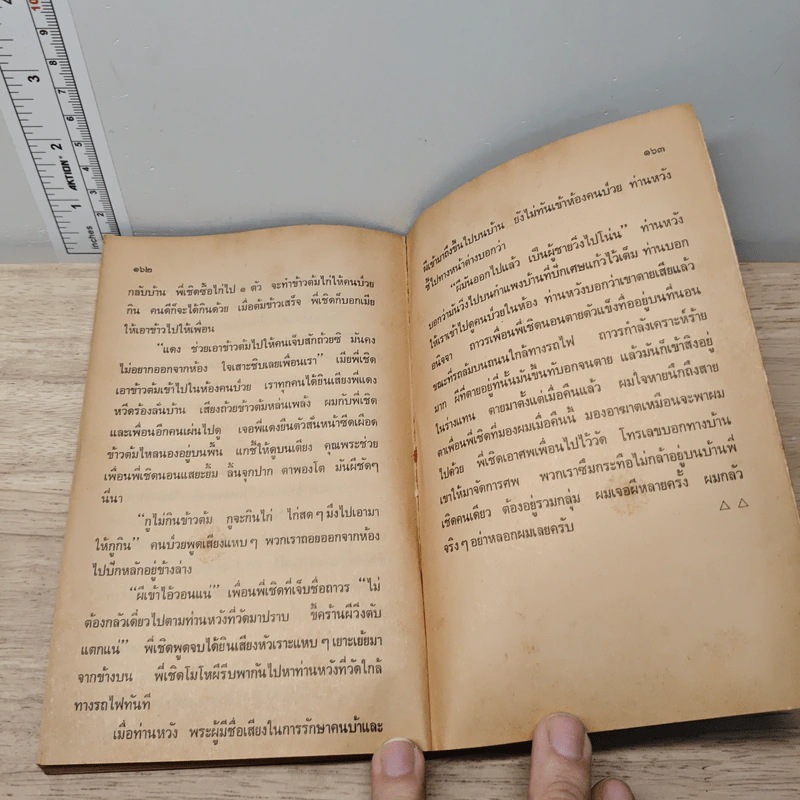 ๑๖๒
กลับบ้าน พี่เชิดซื้อไก่ไป ๑ ตัว จะทำข้าวต้มไก่ให้คนป่วย
กิน คนดีก็จะได้กินด้วย เมื่อต้มข้าวเสร็จ พี่เชิดก็บอกเมีย
ให้เอาข้าวไปให้เพื่อน
“แดง ช่วยเอาข้าวต้มไปให้คนเจ็บสักถ้วยซิ มันคง
ไม่อยากออกจากห้อง ใจเสาะชิบเลยเพื่อนเรา” เมียพี่เชิด
เอาข้าวต้มเข้าไปในห้องคนป่วย เราทุกคนได้ยินเสียงพี่แดง
หวีดร้องลั่นบ้าน เสียงถ้วยข้าวต้มหล่นเพล้ง ผมกับพี่เชิด
และเพื่อนอีกคนเผ่นไปดู เจอพี่แดงยืนตัวสั่นหน้าซีดเผือด
ข้าวต้มไหลนองอยู่บนพื้น แกชี้ให้ดูบนเตียง คุณพระช่วย
เพื่อนพี่เชิดนอนแสยะยิ้ม ลิ้นจุกปาก ตาพองโต มันผีชัดๆ
นี่นา
“กูไม่กินข้าวต้ม กูจะกินไก่ ไก่สดๆ มึงไปเอามา
ให้กูกิน” คนป่วยพูดเสียงแหบๆ พวกเราถอยออกจากห้อง
ไปปักหลักอยู่ข้างล่าง
“ผีเข้าไอ้วอนแน่” เพื่อนพี่เชิดที่เจ็บชื่อถาวร “ไม่
ต้องกลัวเดี๋ยวไปตามท่านหวังที่วัดมาปราบ ขี้คร้านผีวิ่งตับ
แตกแน่” พี่เชิดพูดจบได้ยินเสียงหัวเราะแหบๆ เยาะเย้ยมา
จากข้างบน พี่เชิดโมโหผีรีบพากันไปหาท่านหวังที่วัดใกล้
ทางรถไฟทันที
เมื่อท่านหวัง พระผู้มีชื่อเสียงในการรักษาคนบ้าและ
๑๖๓
ผีเข้ามาถึงขึ้นไปบนบ้าน ยังไม่ทันเข้าห้องคนป่วย ท่านหวัง
ชี้ไปทางหน้าต่างบอกว่า
“ผีมันออกไปแล้ว เป็นผู้ชายวิ่งไปโน่น” ท่านหวัง
บอกว่ามันวิ่งไปบนกำแพงบ้านที่ปักเศษแก้วไว้เต็ม ท่านบอก
ให้เราเข้าไปดูคนป่วยในห้อง ท่านหวังบอกว่าเขาตายเสียแล้ว
อนิจจา ถาวรเพื่อนพี่เชิดนอนตายตัวแข็งทื่ออยู่บนที่นอน
ขณะที่รถล้มบนถนนใกล้ทางรถไฟ ถาวรกำลังเคราะห์ร้าย
มาก ผีที่ตายอยู่ที่นั้นมันขึ้นทับอกจนตาย แล้วมันก็เข้าสิงอยู่
ในร่างแทน ตายมาตั้งแต่เมื่อคืนแล้ว ผมใจหายนึกถึงสาย
ตาเพื่อนพี่เชิดที่มองผมเมื่อคืนนี้ มองอาฆาตเหมือนจะพาผม
ไปด้วย พี่เชิดเอาศพเพื่อนไปไว้วัด โทรเลขบอกทางบ้าน
เขาให้มาจัดการศพ พวกเราซึมกระทือไม่กล้าอยู่บนบ้านพี่
เชิดคนเดียว ต้องอยู่รวมกลุ่ม ผมเจอผีหลายครั้ง ผมกลัว
จริงๆ อย่าหลอกผมเลยครับ △ △
3
2
1
AKTION
inches
10
9
8
7
6
5
4
3
2
1